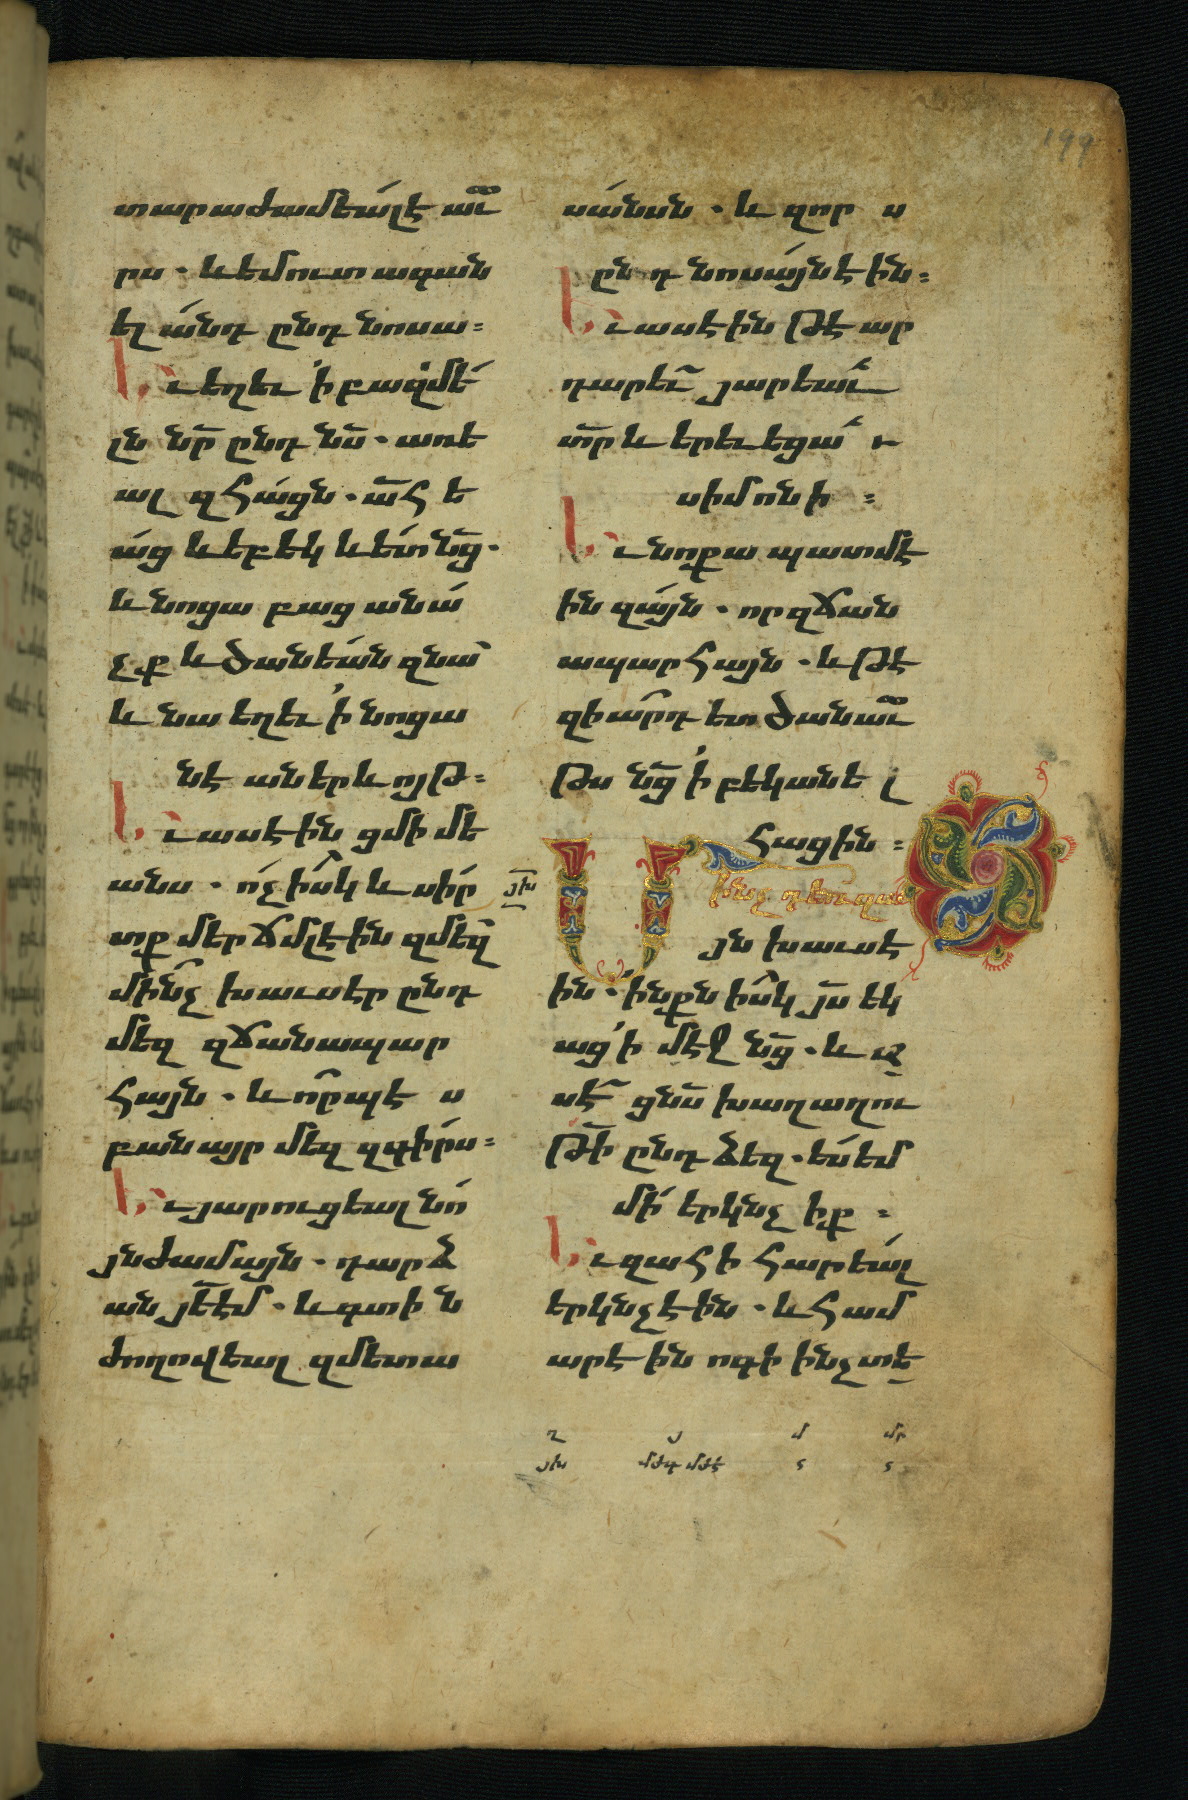 199
տարաժամեալ է աւ
րս · և եմուտ ագան
ել անդ ընդ նոսա ։
Եւ եղեւ ի բազմե
լն նր ընդ նս · առե
ալ զհացն · ահ ե
աց և եբեկ և ետ նց ·
և նոցա բացան ա
չք և ծանեան զնա
և նա եղեւ ի նոցա
նէ աներևոյթ ։
Եւ ասէին ցմիմե
անս · ոչ իսկ և սիր
տք մեր ճմլէին զմեզ
մինչ խաւսէր ընդ
մեզ զճանապար
հայն · և որպէս
բանայր մեզ զգիրս ։
Եւ յարուցեալ նո
յնժամայն · դարձ
ան յեէմ · և գտին
ժողովեալ զմետա
սանսն · և զորս
ընդ նոսայն էին ։
Եւ ասէին թէ ար
դարեւ յարեաւ
տր և երեւեցաւ
սիմոնի ։
Եւ նոքա պատմէ
ին զայն · որ զճան
ապարհայն · և թէ
զիարդ ետ ծանաւ
թս նց ի բեկանել
հացին ։
Մինչ դեռ զայս
յն խաւսէ
ին · ինքն իսկ յս եկ
աց ի մէջ նց · և ա
սէ ցնս խաղաղու
թի ընդ ձեզ · ես եմ
մի երկնչիք ։
Եւ զահի հարեալ
երկնչէին · և համ
արէին ոգի ինչ տե